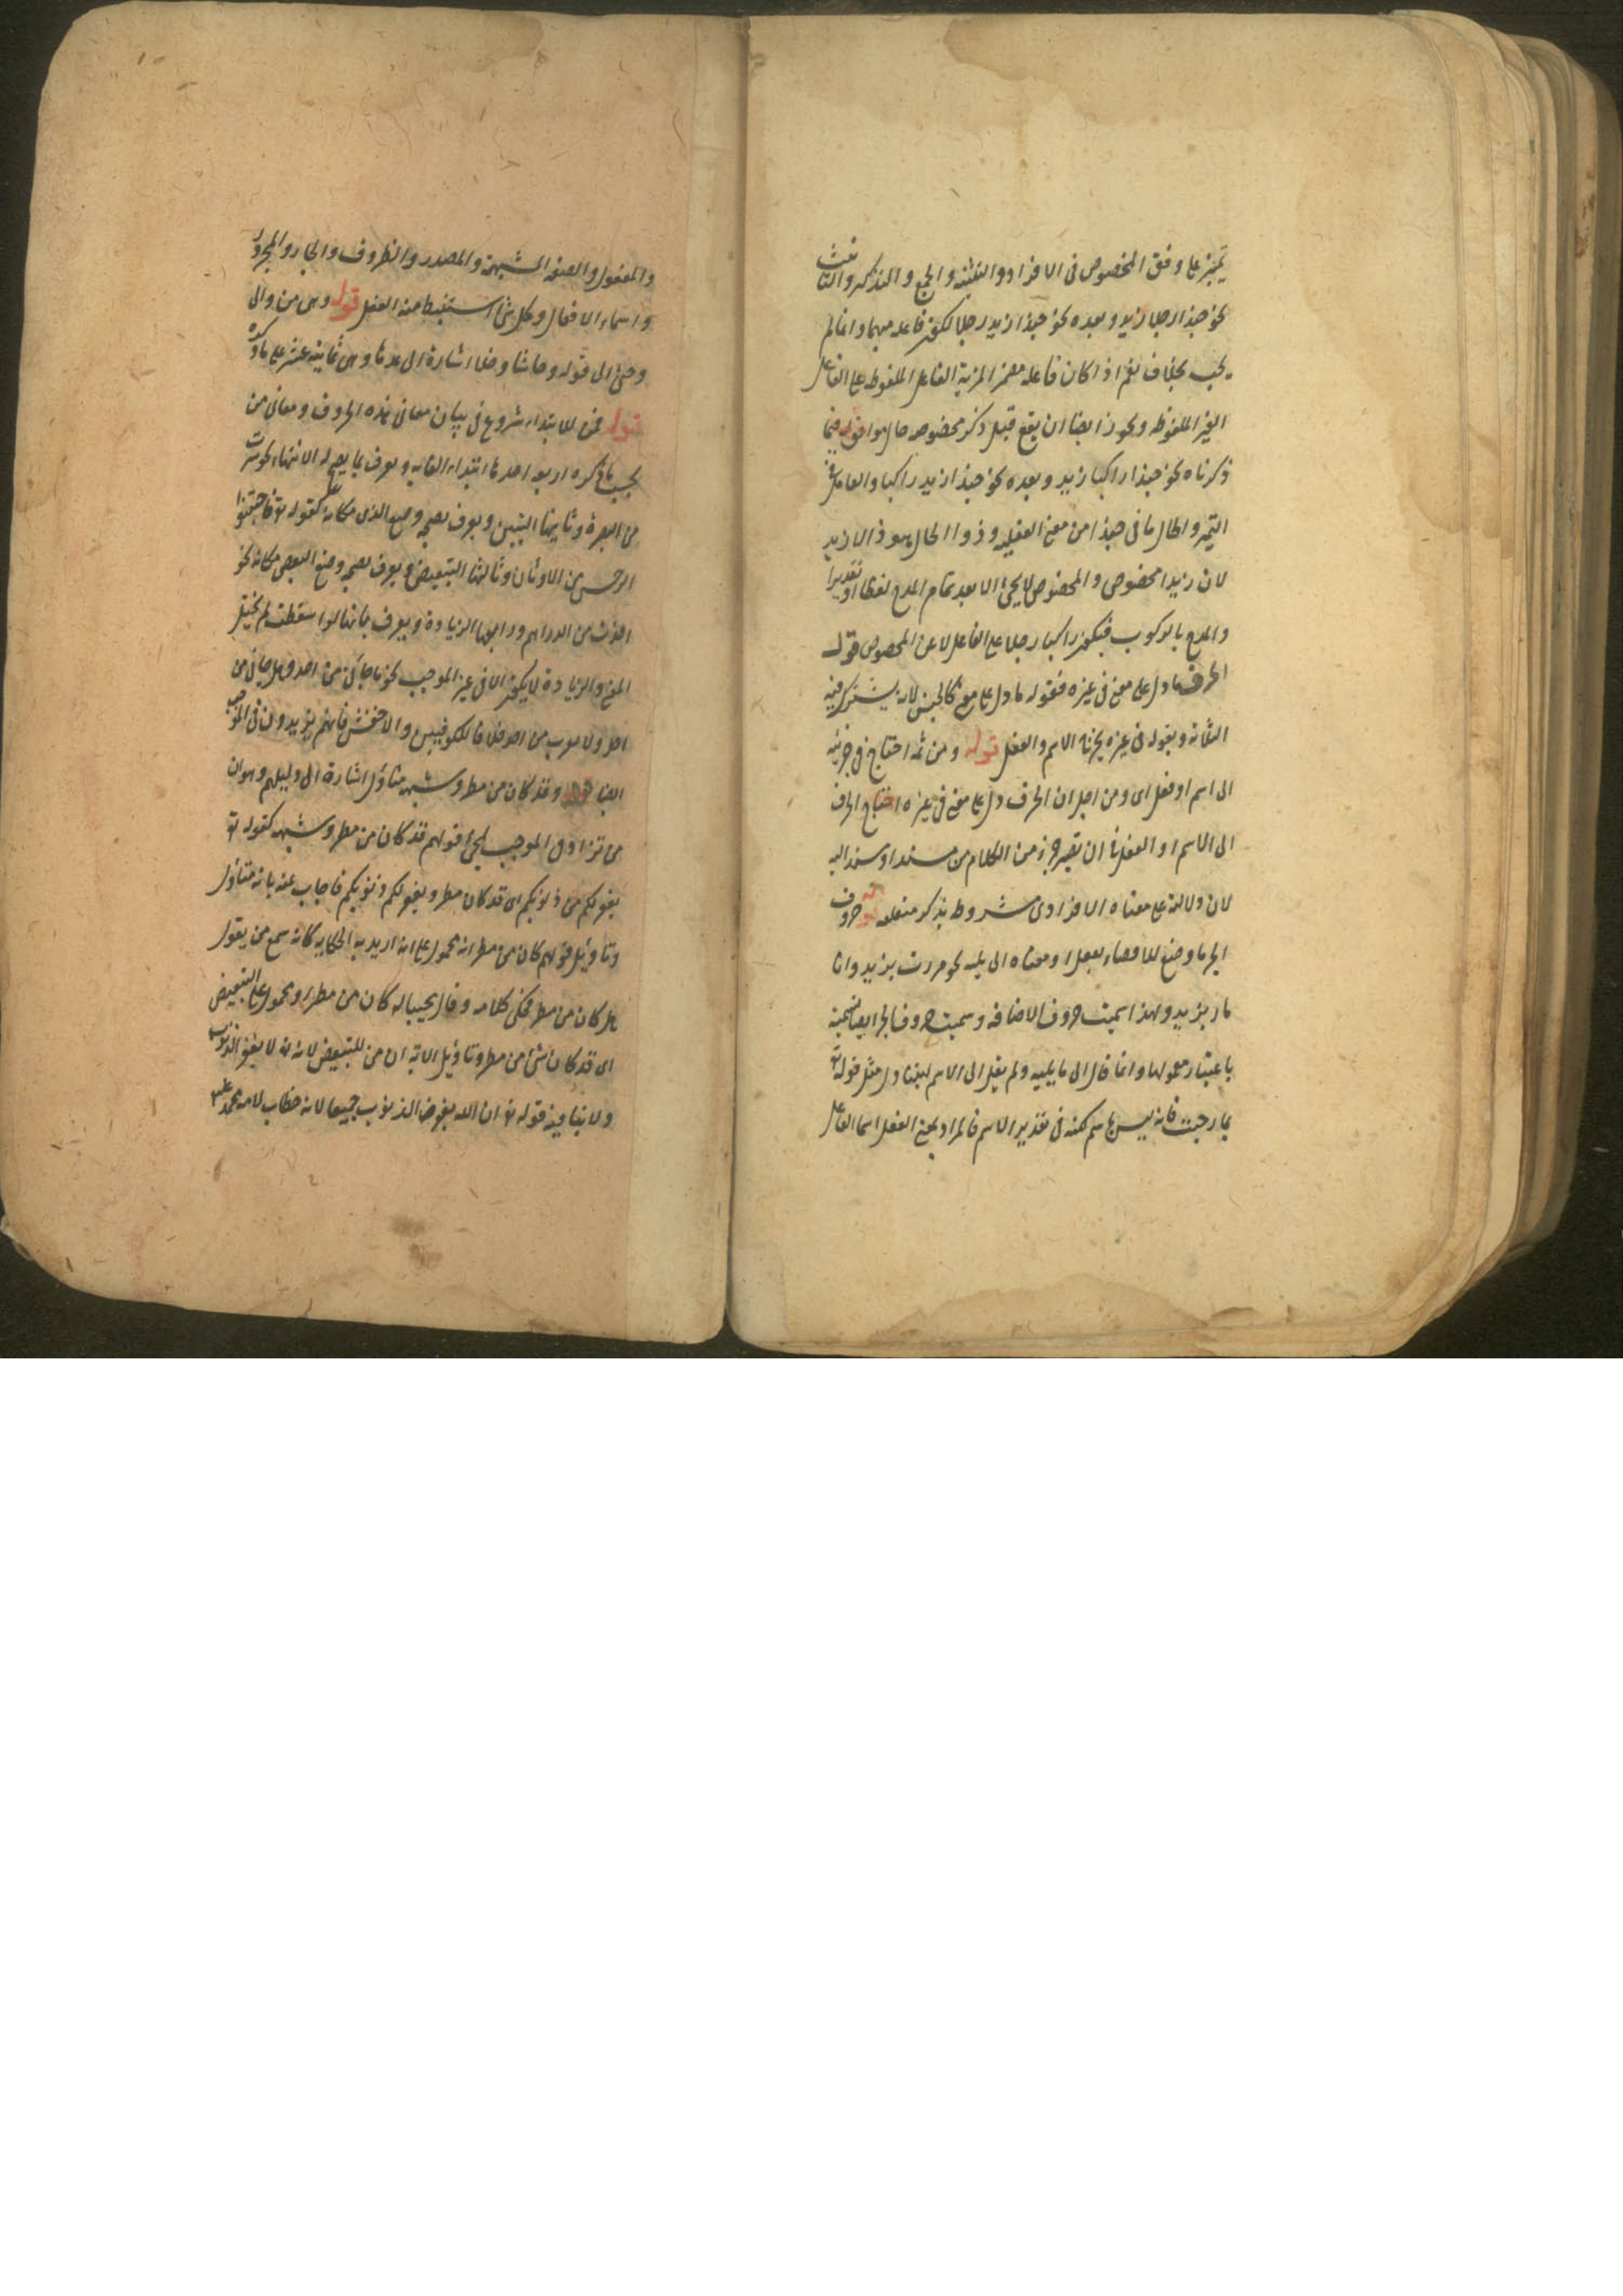 تمييز على وفق المخصوص فى الافراد والتثنية والجمع والتذكير والتانيث
نحو حبذا رجلا زيد وبعده نحو حبذا زيد رجلا لكون فاعله مبهما وانما لم
يجب بخلاف نعم اذا كان فاعله مضمر المزية الفاعل الملفوظ على الفاعل
الغير الملفوظ ويجوز ايضا ان يقع قبل ذكر مخصوصه حال موافق له فيما
ذكرناه نحو حبذا راكبا زيد وبعده نحو حبذا زيد راكبا والعامل فى
التميز والحال ما فى حبذا من معنى الفعلية وذو الحال هو ذا لا زيد
لان زيدا مخصوص والمخصوص لا يجئ الا بعد تمام المدح لفظا او تقديرا
والمدح بالركوب فيكون راكبا رجلا عن الفاعل لا عن المخصوص قوله
الحرف ما دل على معنى فى غيره فقوله ما دل على معنى كالجنس لانه يشترك فيه
الثلاثة وبقوله فى غيره يخرج الاسم والفعل قوله ومن ثمه احتاج فى جزئيته
الى اسم او فعل اى ومن اجل ان الحرف دل على معنى فى غيره احتاج الحرف
الى الاسم او الفعل فى ان يصير جزء من الكلام من مسند او مسند اليه
لان دلالته على معناه الافرادى مشروط بذكر متعلقه قوله حروف
الجر ما وضع للافضاء بفعل او معناه الى ما يليه نحو مررت بزيد وانا
مار بزيد ولهذا سميت حروف الاضافه وسميت حروف الجر ايضا تسمية
باعتبار معمولها وانما قال الى ما يليه ولم يقل الى الاسم ليتناول مثل قوله تع
بما رحبت فانه ليس باسم لكنه فى تقدير الاسم فالمراد بمعنى الفعل اسما الفاعل
والمفعول والصفة المشبهة والمصدر والظروف والجار والمجرور
واسماء الافعال وكل شئ استنبط منه الفعل قوله وهى من والى
وحتى الى قوله وحاشا وخلا اشارة الى عدها وهى ثمانية عشر على ما ذكره
قوله فمن للابتداء شروع فى بيان معانى هذه الحروف ومعانى من
بحسب ما ذكره اربعه احدها ابتداء الغايه ويعرف بما يصح له الانتهاء نحو سرت
من البصرة وثانيها التبين ويعرف بصحه وضع الذى مكانه كقوله تع فاجتنبوا
الرجس من الاوثان وثالثها التبعيض ويعرف بصحه وضع البعض مكانه نحو
اخذت من الدراهم ورابعها الزيادة ويعرف بانها لو اسقطت لم يختل
المعنى والزيادة لا يكون الا فى غير الموجب نحو ما جاءنى من احد وهل جاءنى من
احد ولا تضرب من احد خلافا للكوفيين والاخفش فانهم يزيدون فى الموجب
ايضا قوله وقد كان من مطر وشبهه متاؤل اشارة الى دليلهم وهو ان
من تزاد فى الموجب لمجئ قولهم قد كان من مطر وشبهه كقوله تع
يغفر لكم من ذنوبكم اى قد كان مطر ويغفر لكم ذنوبكم فاجاب عنه بانه متاؤل
وتاويل قولهم كان من مطر انه محمول على انه اريد به الحكايه كانه سمع من يقول
هل كان من مطر فحكى كلامه وقال مجيبا له كان من مطر او محمول على التبعيض
اى قد كان شئ من مطر وتاويل الاية ان من للتبعيض لانه تع لا يغفر الذنوب
ولا ينافيه قوله تع ان الله يغفر الذنوب جميعا لانه خطاب لامة محمد عليه